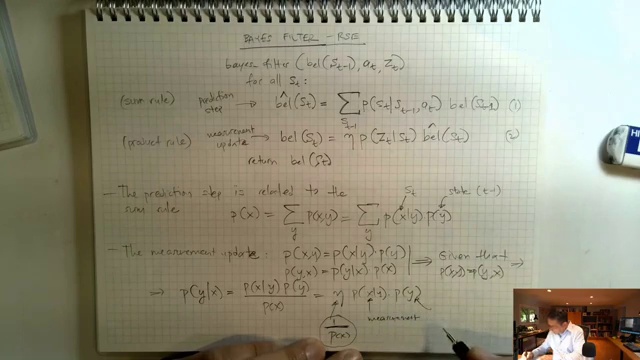 BAYES FILTER - RSE
bayes filter (bel(S_{t-1}), a_t, Z_t)
for all S_t:
(sum rule) prediction step → b̂el(S_t) = ∑_{S_{t-1}} p(S_t|S_{t-1}, a_t) bel(S_{t-1}) (1)
(product rule) measurement update → bel(S_t) = η p(Z_t|S_t) b̂el(S_t) (2)
return bel(S_t)
- The prediction step is related to the sum rule
S_t state (t-1)
p(x) = ∑_y p(x,y) = ∑_y p(x|y) p(y)
- The measurement update: p(x,y) = p(x|y) · p(y)
p(y,x) = p(y|x) p(x) ⟹ Given that p(x,y) = p(y,x) ⟹
⟹ p(y|x) = p(x|y) p(y) / p(x) = η p(x|y) · p(y)
1/p(x) measurement
HI